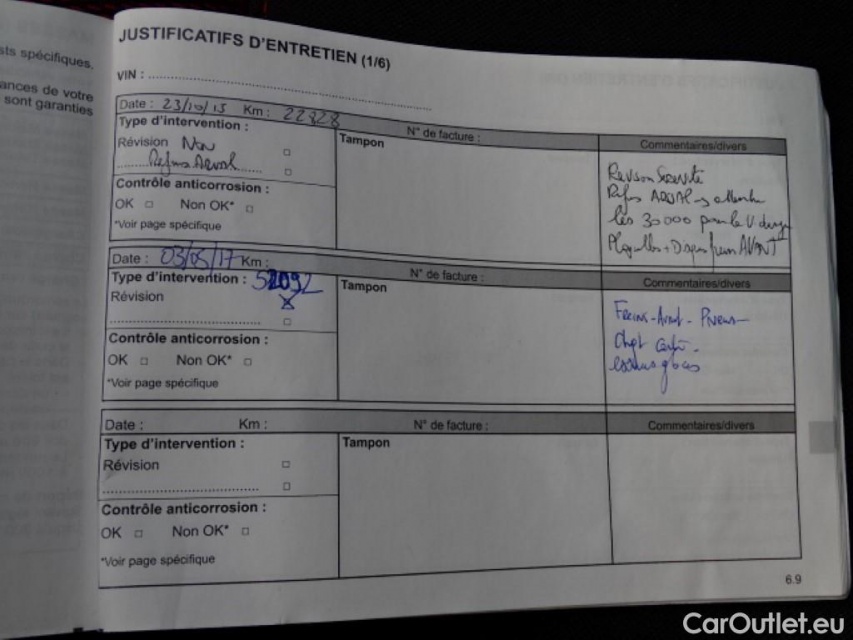 sts spécifiques,
ances de votre
sont garanties
JUSTIFICATIFS D'ENTRETIEN (1/6)
VIN :
Date : 23/10/15 Km : 22828 N° de facture : Commentaires/divers
Type d'intervention :
Tampon
Révision Non
Refus Arval
Contrôle anticorrosion :
OK Non OK*
*Voir page spécifique
Revision
Refus ARVAL
les 30000 pour la
Plaquettes + Disques freins AVANT
Date : 03/05/17 Km : N° de facture : Commentaires/divers
Type d'intervention : 52092
Tampon
Révision
Contrôle anticorrosion :
OK Non OK*
*Voir page spécifique
Freins - Avant - Pneus -
Chgt
essuie glaces
Date : Km : N° de facture : Commentaires/divers
Type d'intervention :
Tampon
Révision
Contrôle anticorrosion :
OK Non OK*
*Voir page spécifique
6.9
CarOutlet.eu